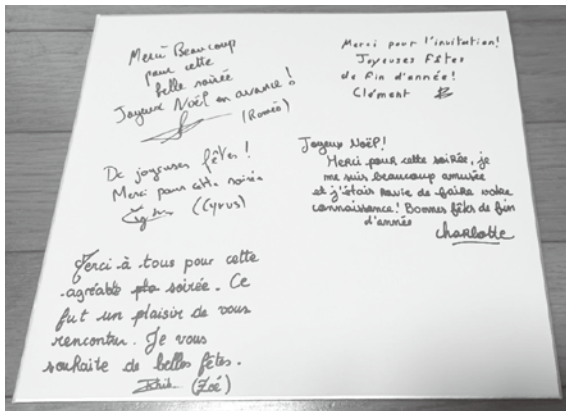 Merci Beaucoup
pour cette
belle soirée
Joyeux Noël en avance !
(Roméo)
De joyeuses fêtes !
Merci pour cette soirée
(Cyrus)
Merci à tous pour cette
agréable soirée. Ce
fut un plaisir de vous
rencontrer. Je vous
souhaite de belles fêtes.
(Zoé)
Merci pour l'invitation!
Joyeuses Fêtes
de fin d'année!
Clément
Joyeux Noël!
Merci pour cette soirée, je
me suis beaucoup amusée
et j'étais ravie de faire votre
connaissance! Bonnes fêtes de fin
d'année
Charlotte